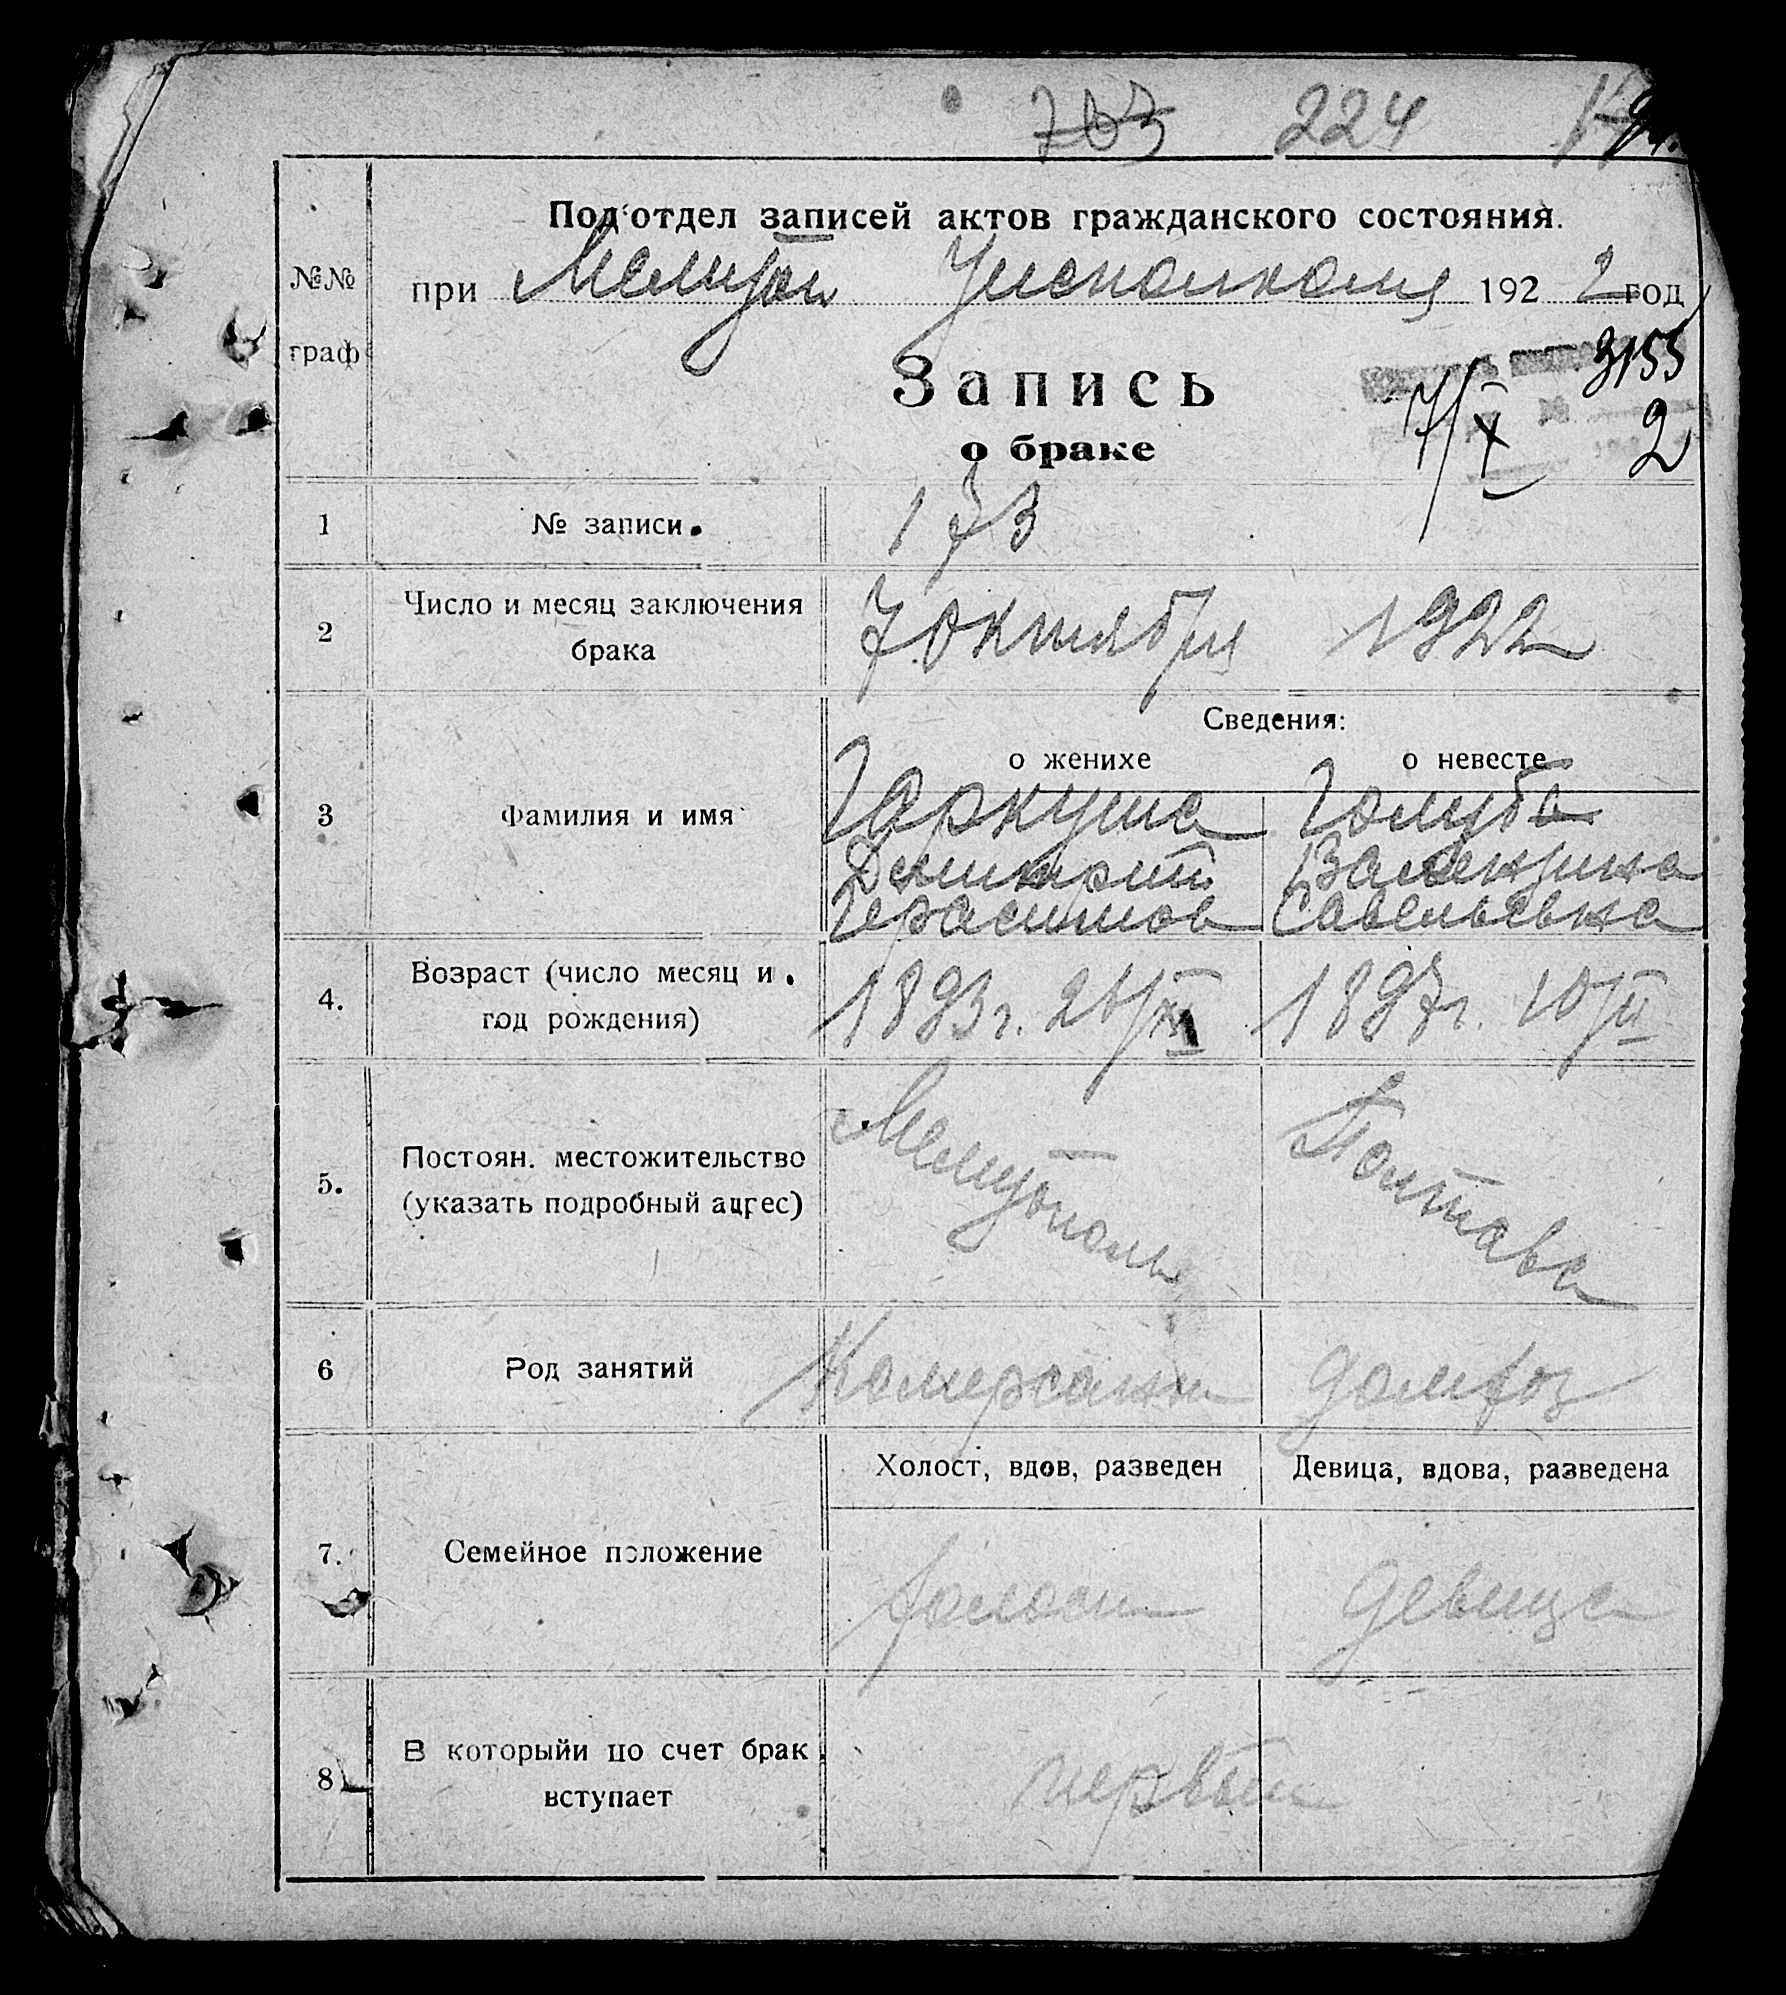 703 224
Под'отдел записей актов гражданского состояния.
№№ при Мелитоп Уисполкома 1922 год
граф
3155
Запись
7/X 2
о браке
1 № записи. 173
2 Число и месяц заключения 7 Октября 1922
брака
Сведения:
о женихе о невесте
3 Фамилия и имя Гаркуша Голуб
Демитрий Валентина
Герасимов Савельевна
4. Возраст (число месяц и 1893 г. 1897 г. 10/II
год рождения)
5. Постоян. местожительство Мелитополь Полтава
(указать подробный адрес)
6 Род занятий Комерсант домхоз
Холост, вдов, разведен Девица, вдова, разведена
7. Семейное положение холост девица
8 В которыйи по счет брак первый
вступает